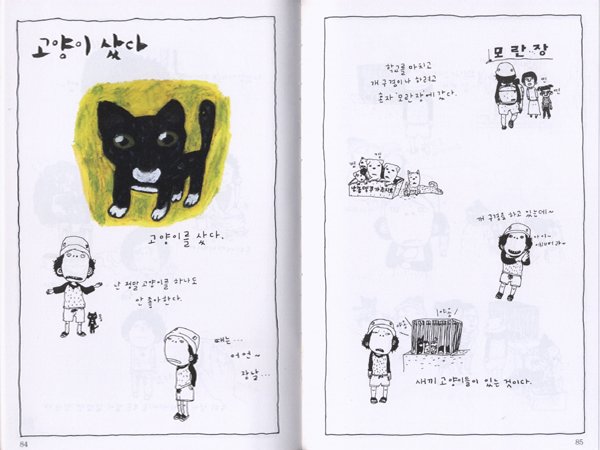 고양이 샀다
고양이를 샀다.
난 정말 고양이를 하나도
안 좋아한다.
때는...
어언~
장날...
84
모란.장
학교를 마치고
개 구경이나 하려고
혼자 '모란장'에 갔다.
개 구경을 하고 있는데~
아이~
이뻐라~
야옹
야옹
새끼 고양이들이 있는 것이다.
85